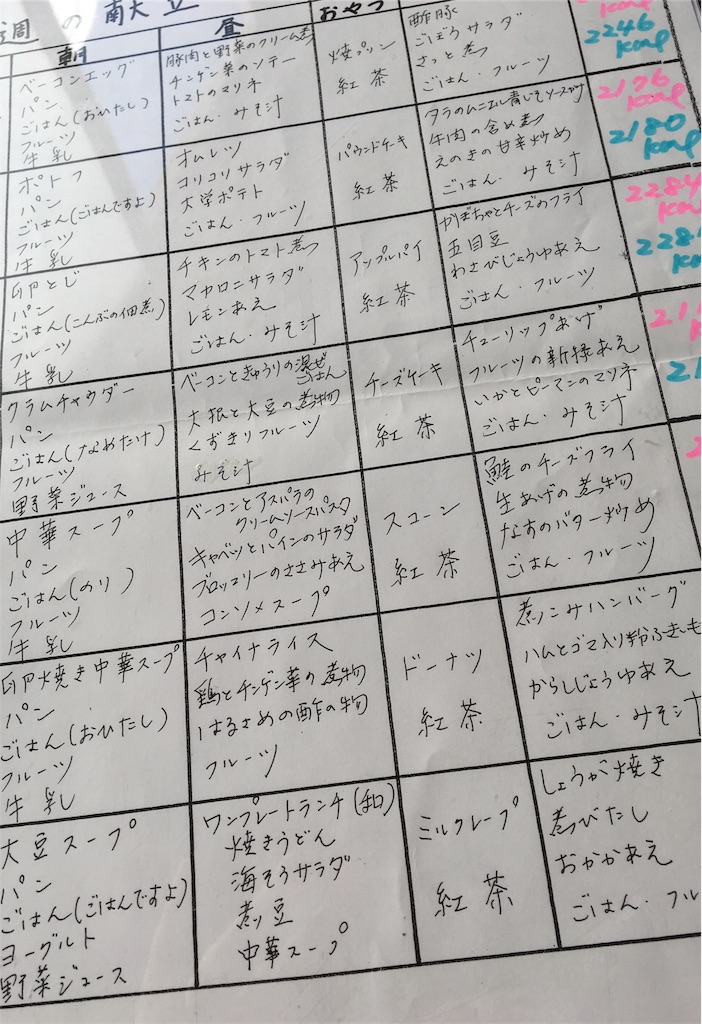 週の献立
朝
昼
おやつ
ベーコンエッグ
パン
ごはん(おひたし)
フルーツ
牛乳
豚肉と野菜のクリーム煮
チンゲン菜のソテー
トマトのマリネ
ごはん・みそ汁
焼プリン
紅茶
酢豚
ごぼうサラダ
さっと煮
ごはん・フルーツ
2246
kcal
ポトフ
パン
ごはん(ごはんですよ)
フルーツ
牛乳
オムレツ
コリコリサラダ
大学ポテト
ごはん・フルーツ
パウンドケーキ
紅茶
タラのムニエル青じそソースがけ
牛肉の含め煮
えのきの甘辛炒め
ごはん・みそ汁
2176
kcal
2180
kcal
卵とじ
パン
ごはん(こんぶの佃煮)
フルーツ
牛乳
チキンのトマト煮
マカロニサラダ
レモンあえ
ごはん・みそ汁
アップルパイ
紅茶
かぼちゃとチーズのフライ
五目豆
わさびじょうゆあえ
ごはん・フルーツ
2284
クラムチャウダー
パン
ごはん(なめたけ)
フルーツ
野菜ジュース
ベーコンときゅうりの混ぜごはん
大根と大豆の煮物
くずきりフルーツ
みそ汁
チーズケーキ
紅茶
チューリップあげ
フルーツの新緑あえ
いかとピーマンのマリネ
ごはん・みそ汁
中華スープ
パン
ごはん(のり)
フルーツ
牛乳
ベーコンとアスパラの
クリームソースパスタ
キャベツとパインのサラダ
ブロッコリーのささみあえ
コンソメスープ
スコーン
紅茶
鮭のチーズフライ
生あげの煮物
なすのバター炒め
ごはん・フルーツ
卵焼き中華スープ
パン
ごはん(おひたし)
フルーツ
牛乳
チャイナライス
鶏とチンゲン菜の煮物
はるさめの酢の物
フルーツ
ドーナツ
紅茶
煮こみハンバーグ
ハムとゴマ入り粉ふきいも
からしじょうゆあえ
ごはん・みそ汁
大豆スープ
パン
ごはん(ごはんですよ)
ヨーグルト
野菜ジュース
ワンプレートランチ(和)
焼きうどん
海そうサラダ
煮豆
中華スープ
ミルクレープ
紅茶
しょうが焼き
煮びたし
おかかあえ
ごはん・フル